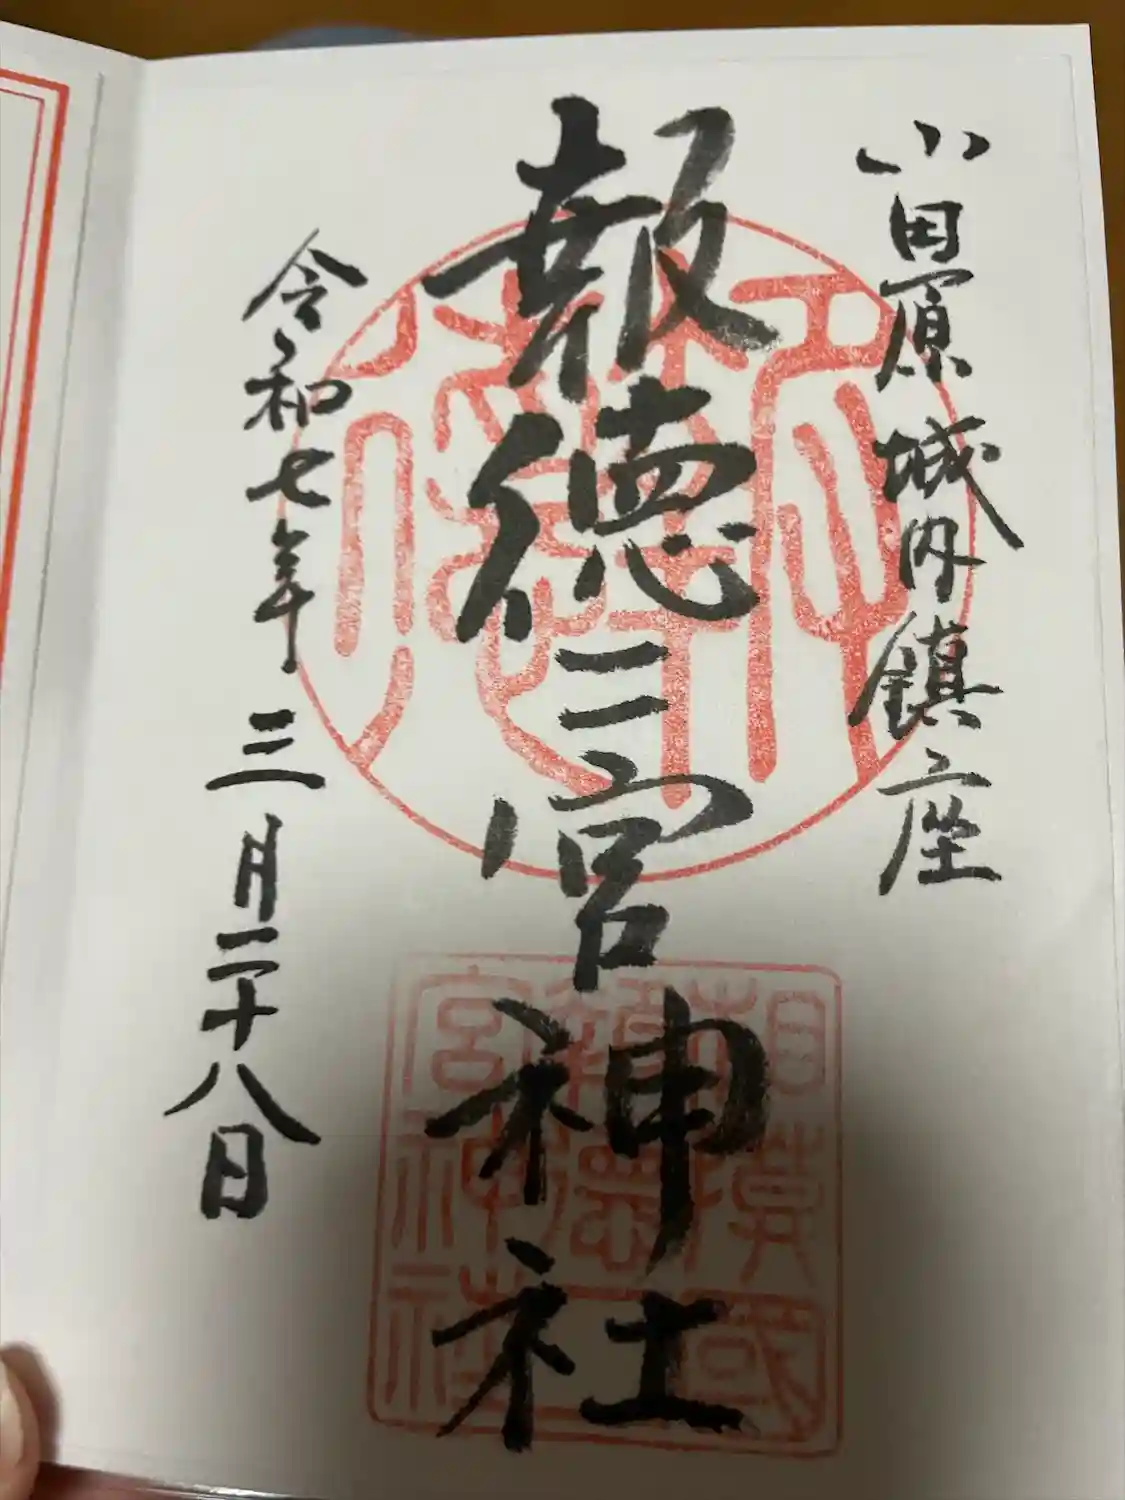 小田原城内鎮座
報徳二宮神社
令和七年三月二十八日
相模國
報徳二
宮神社